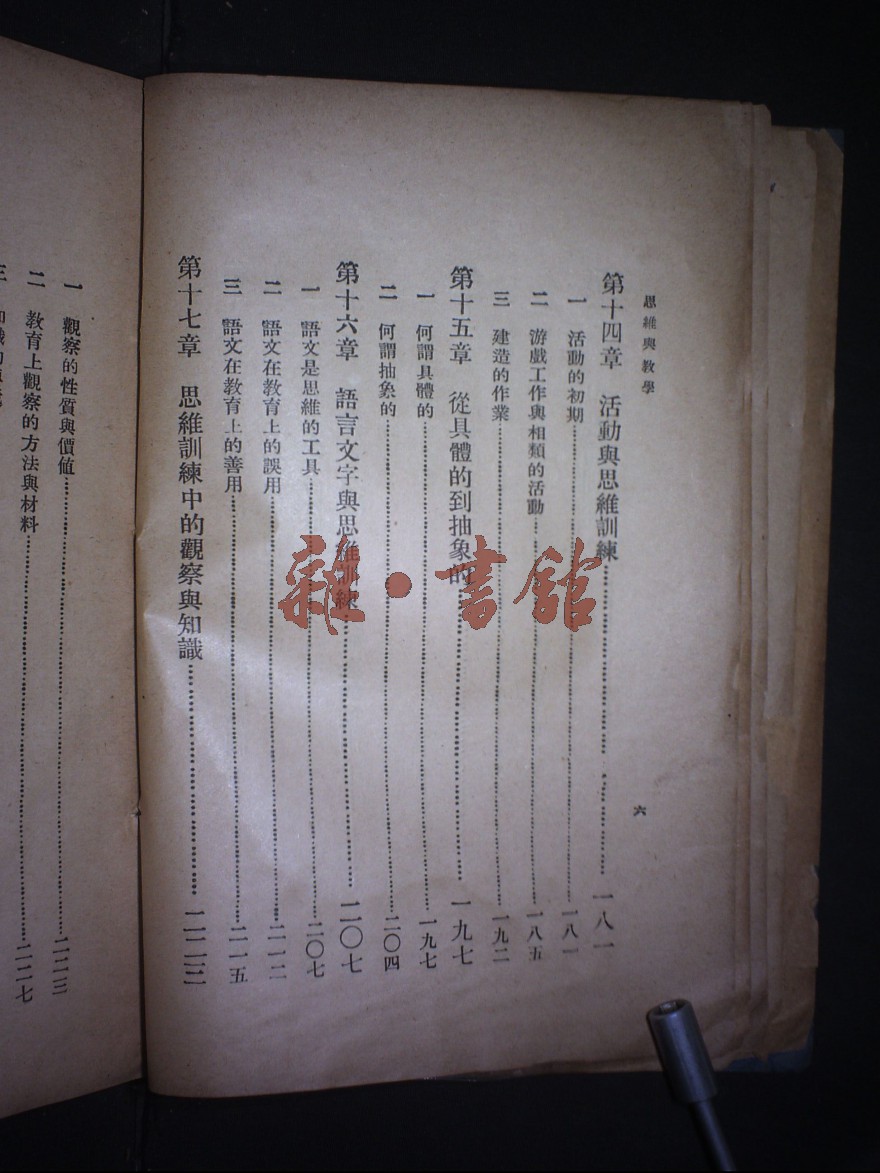 思維與教學
六
第十四章 活動與思維訓練……一八一
一 活動的初期……一八一
二 游戲工作與相類的活動……一八五
三 建造的作業……一九二
第十五章 從具體的到抽象的……一九七
一 何謂具體的……一九七
二 何謂抽象的……二〇四
第十六章 語言文字與思維訓練……二〇七
一 語文是思維的工具……二〇七
二 語文在教育上的誤用……二一二
三 語文在教育上的善用……二一五
第十七章 思維訓練中的觀察與知識……二二三
一 觀察的性質與價值……二二三
二 教育上觀察的方法與材料……二二七
三
雜·書館